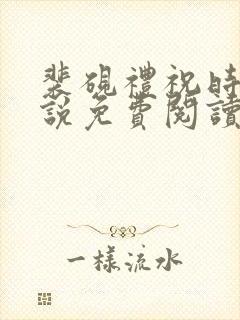 裴硯禮祝時
說免費閱讀
一樣流水